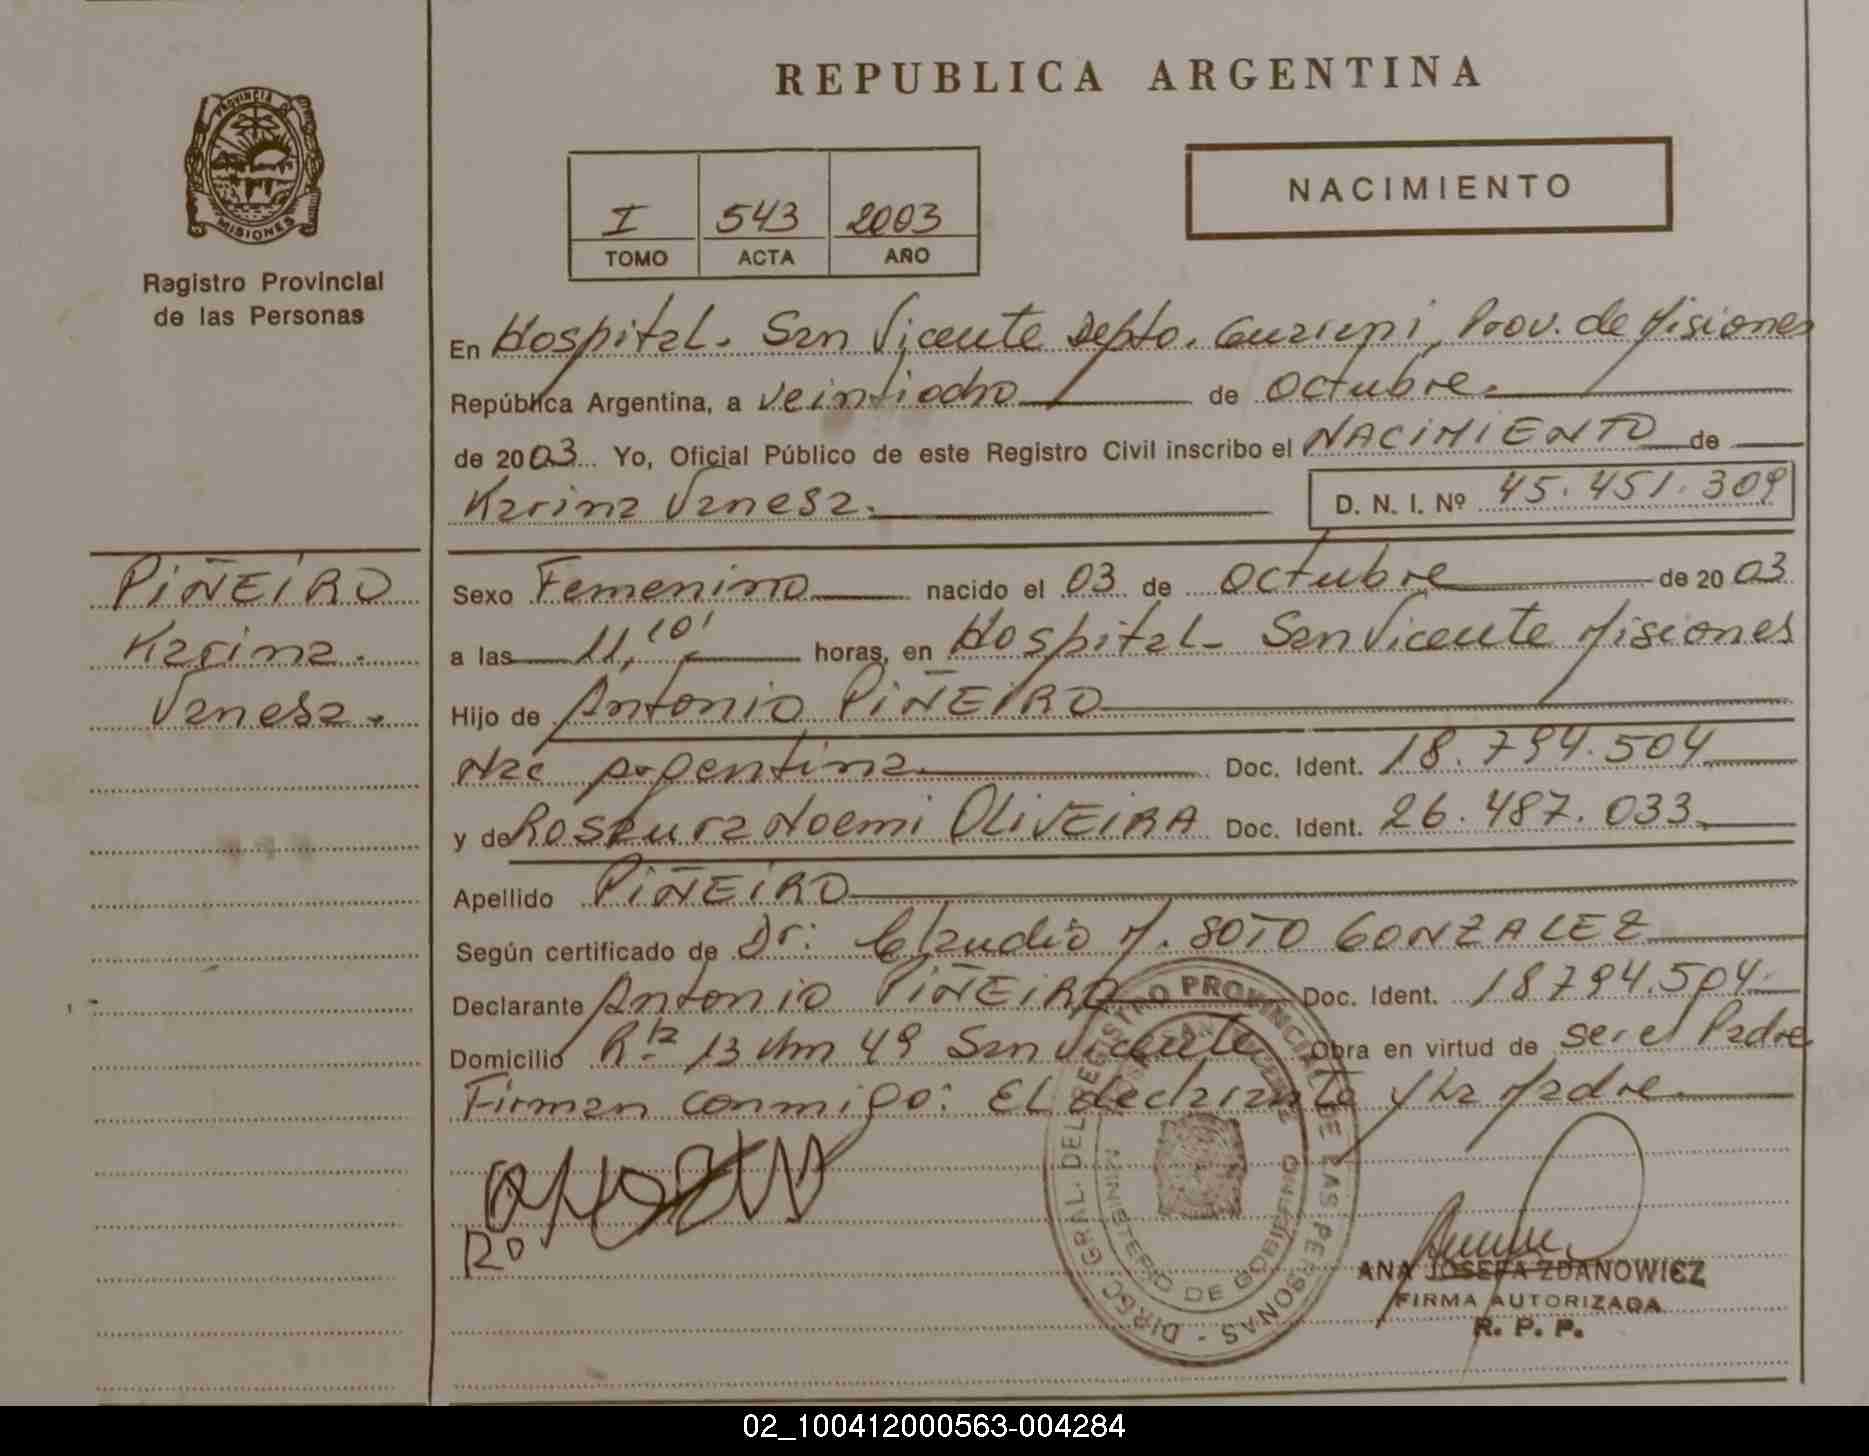 REPUBLICA ARGENTINA
PROVINCIA DE
MISIONES
Registro Provincial
de las Personas
I 543 2003
TOMO ACTA AÑO
NACIMIENTO
En Hospital. San Vicente Depto. Guarani, Prov. de Misiones
República Argentina, a veintiocho de Octubre.
de 2003 Yo, Oficial Público de este Registro Civil inscribo el NACIMIENTO de
Karina Vanesa.
D. N. I. Nº 45.451.309
PIÑEIRO
Karina.
Vanesa.
Sexo Femenino nacido el 03 de Octubre de 2003
a las 11,10' horas, en Hospital- San Vicente Misiones
Hijo de Antonio PIÑEIRO
Nac Argentina Doc. Ident. 18.794.504
y de Rosaura Noemi OLIVEIRA Doc. Ident. 26.487.033
Apellido PIÑEIRO
Según certificado de Dr: Claudio M. SOTO GONZALEZ
Declarante Antonio PIÑEIRO Doc. Ident. 18794.504
Domicilio R.ta 13 Km 49 San Vicente Obra en virtud de ser el Padre
Firman conmigo: El declarante y La Madre.
DIREC. GRAL. DEL REGISTRO PROVINCIAL DE LAS PERSONAS -
MINISTERIO DE GOBIERNO
ANA JOSEFA ZDANOWICZ
FIRMA AUTORIZADA
R. P. P.
02_100412000563-004284